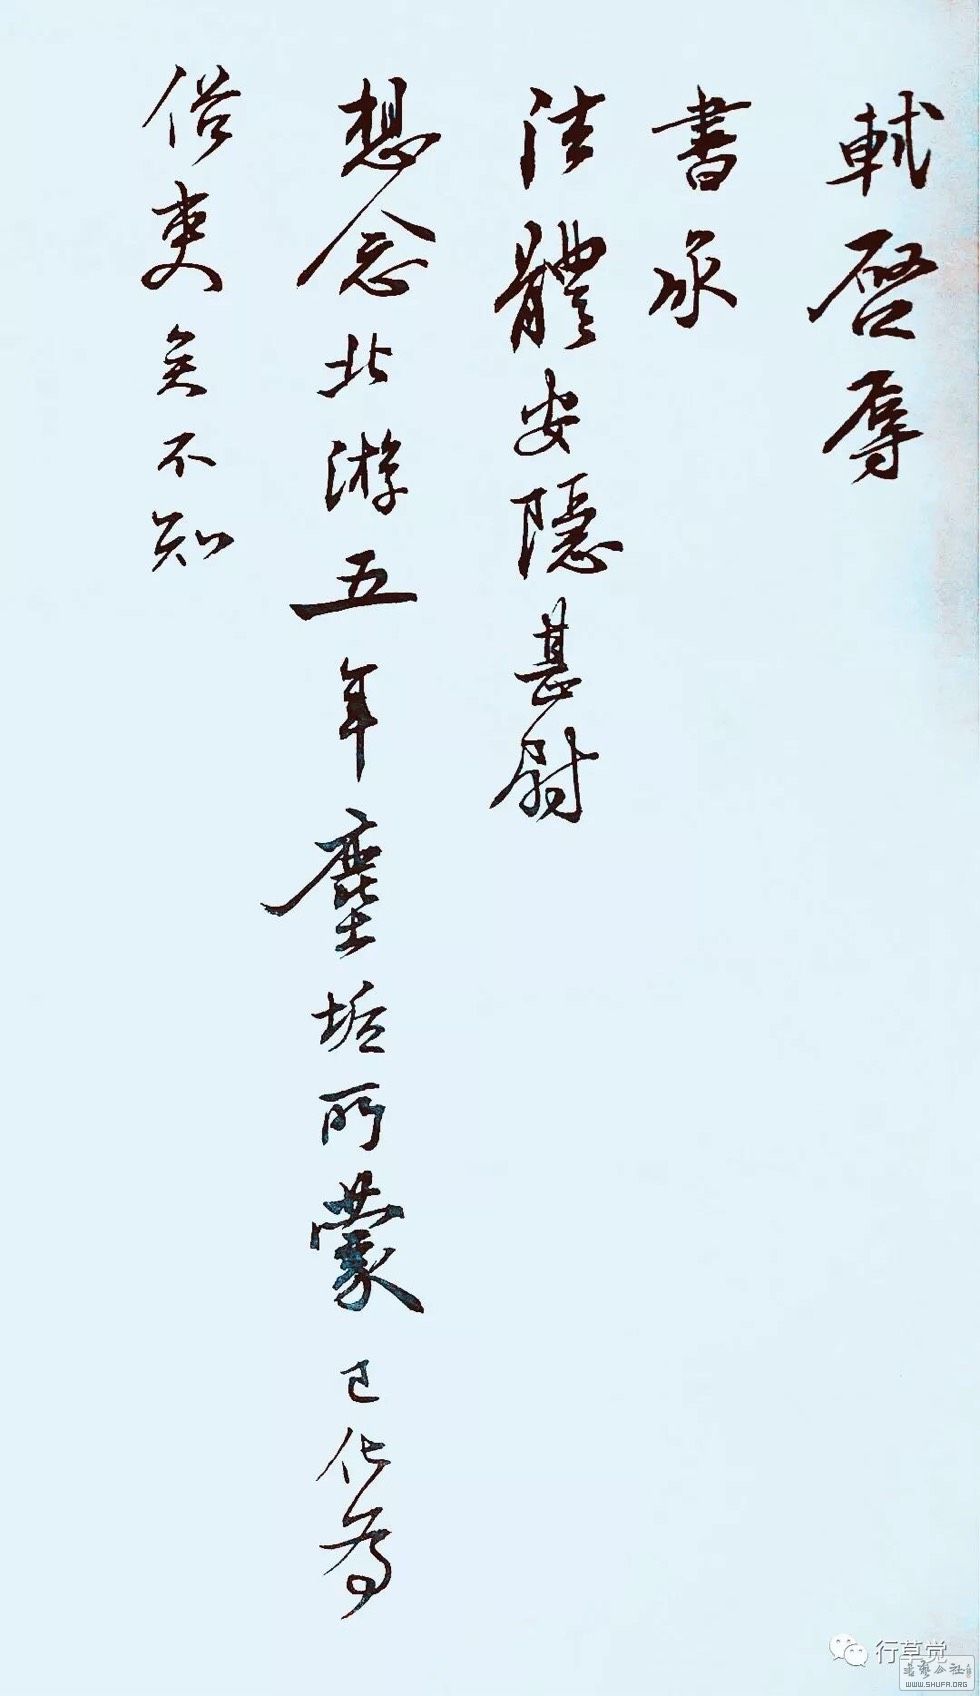 軾啓辱
書承
法體安隱甚尉
想念北游五年塵垢所蒙已化為
俗吏矣不知
行草觉
書藝公社
WWW.SHUFA.ORG